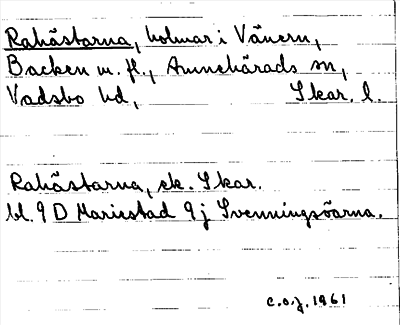 Rahästarna, holmar i Vänern,
Backen m. fl., Amnehärads sn,
Vadsbo hd, Skar. l.
Rahästarna, ek. Skar.
bl. 9 D Mariestad 9 j Svenningsöarna.
c.o.j. 1961